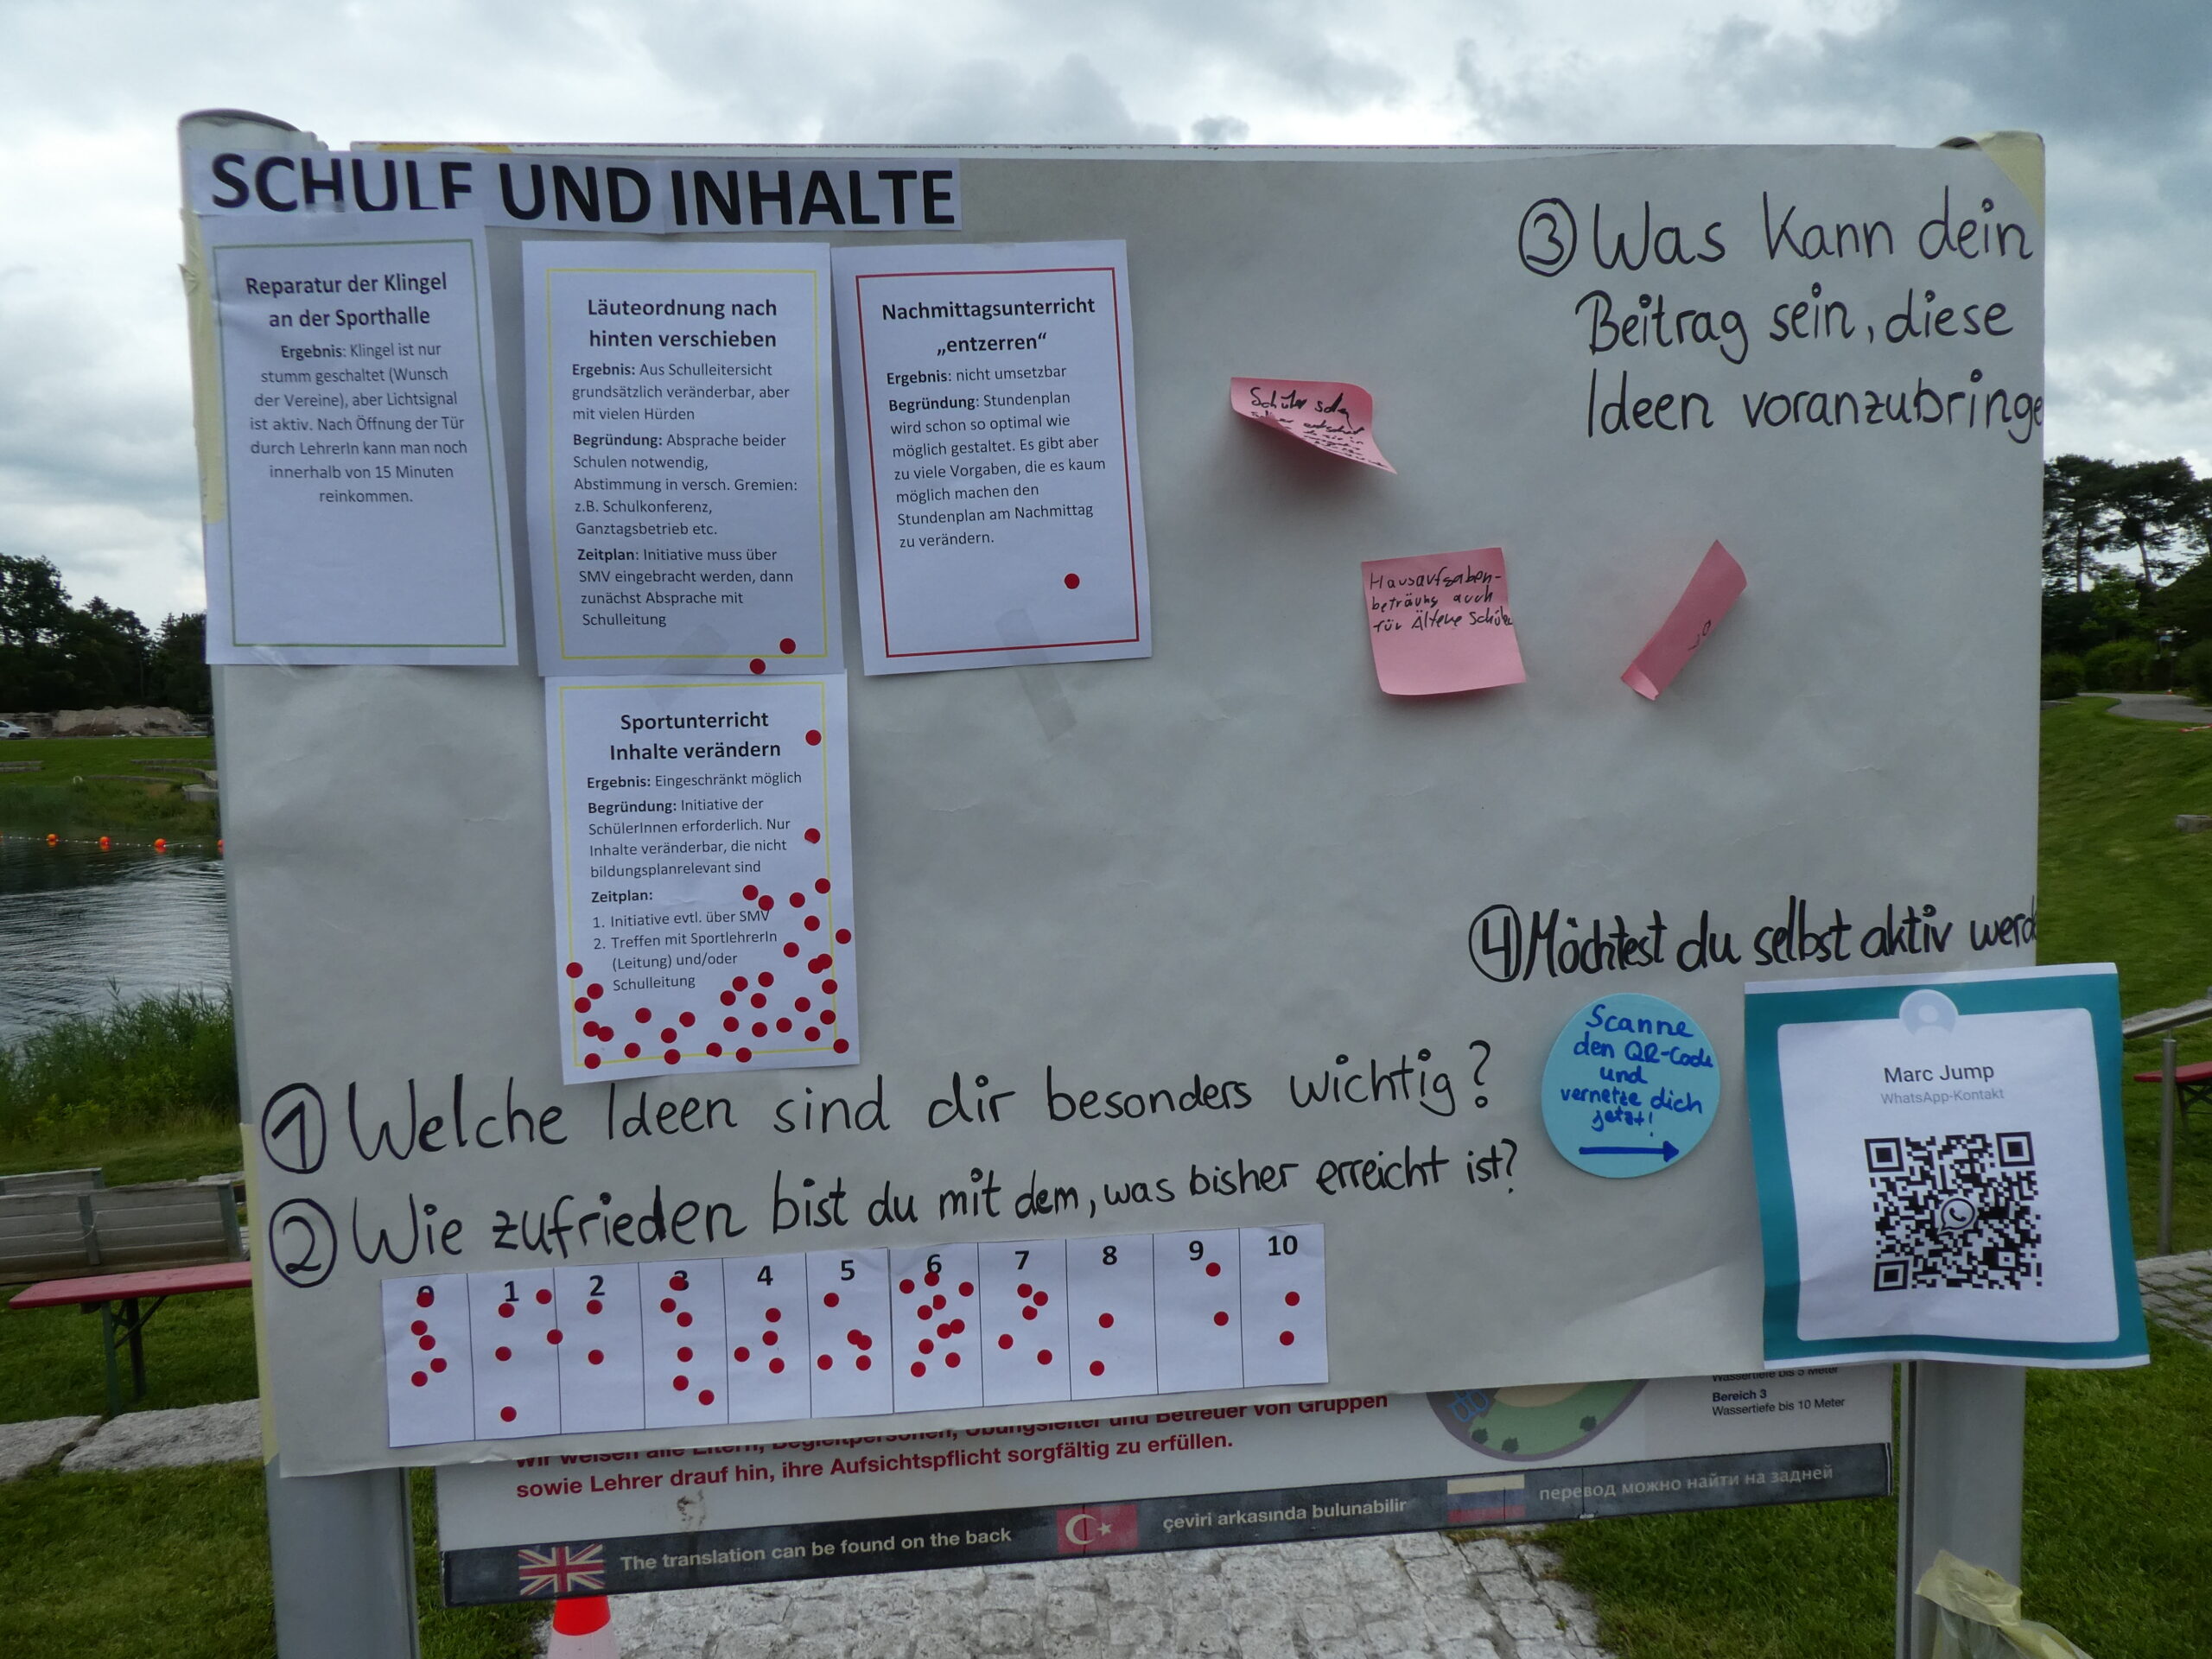 SCHULE UND INHALTE
Reparatur der Klingel
an der Sporthalle
Ergebnis: Klingel ist nur
stumm geschaltet (Wunsch
der Vereine), aber Lichtsignal
ist aktiv. Nach Öffnung der Tür
durch LehrerIn kann man noch
innerhalb von 15 Minuten
reinkommen.
Läuteordnung nach
hinten verschieben
Ergebnis: Aus Schulleitersicht
grundsätzlich veränderbar, aber
mit vielen Hürden
Begründung: Absprache beider
Schulen notwendig,
Abstimmung in versch. Gremien:
z.B. Schulkonferenz,
Ganztagsbetrieb etc.
Zeitplan: Initiative muss über
SMV eingebracht werden, dann
zunächst Absprache mit
Schulleitung
Nachmittagsunterricht
„entzerren“
Ergebnis: nicht umsetzbar
Begründung: Stundenplan
wird schon so optimal wie
möglich gestaltet. Es gibt aber
zu viele Vorgaben, die es kaum
möglich machen den
Stundenplan am Nachmittag
zu verändern.
Sportunterricht
Inhalte verändern
Ergebnis: Eingeschränkt möglich
Begründung: Initiative der
SchülerInnen erforderlich. Nur
Inhalte veränderbar, die nicht
bildungsplanrelevant sind
Zeitplan:
1. Initiative evtl. über SMV
2. Treffen mit SportlehrerIn
(Leitung) und/oder
Schulleitung
Schüler
Hausaufgaben-
beträung auch
für Ältere Schüler
③ Was kann dein
Beitrag sein, diese
Ideen voranzubringe
④ Möchtest du selbst aktiv werd
Scanne
den QR-Code
und
vernetze dich
jetzt!
Marc Jump
WhatsApp-Kontakt
① Welche Ideen sind dir besonders wichtig?
② Wie zufrieden bist du mit dem, was bisher erreicht ist?
0 1 2 3 4 5 6 7 8 9 10
Wir weisen alle Eltern, Begleitpersonen, Übungsleiter und Betreuer von Gruppen
sowie Lehrer drauf hin, ihre Aufsichtspflicht sorgfältig zu erfüllen.
Wassertiefe bis 5 Meter
Bereich 3
Wassertiefe bis 10 Meter
The translation can be found on the back
çeviri arkasında bulunabilir
перевод можно найти на задней